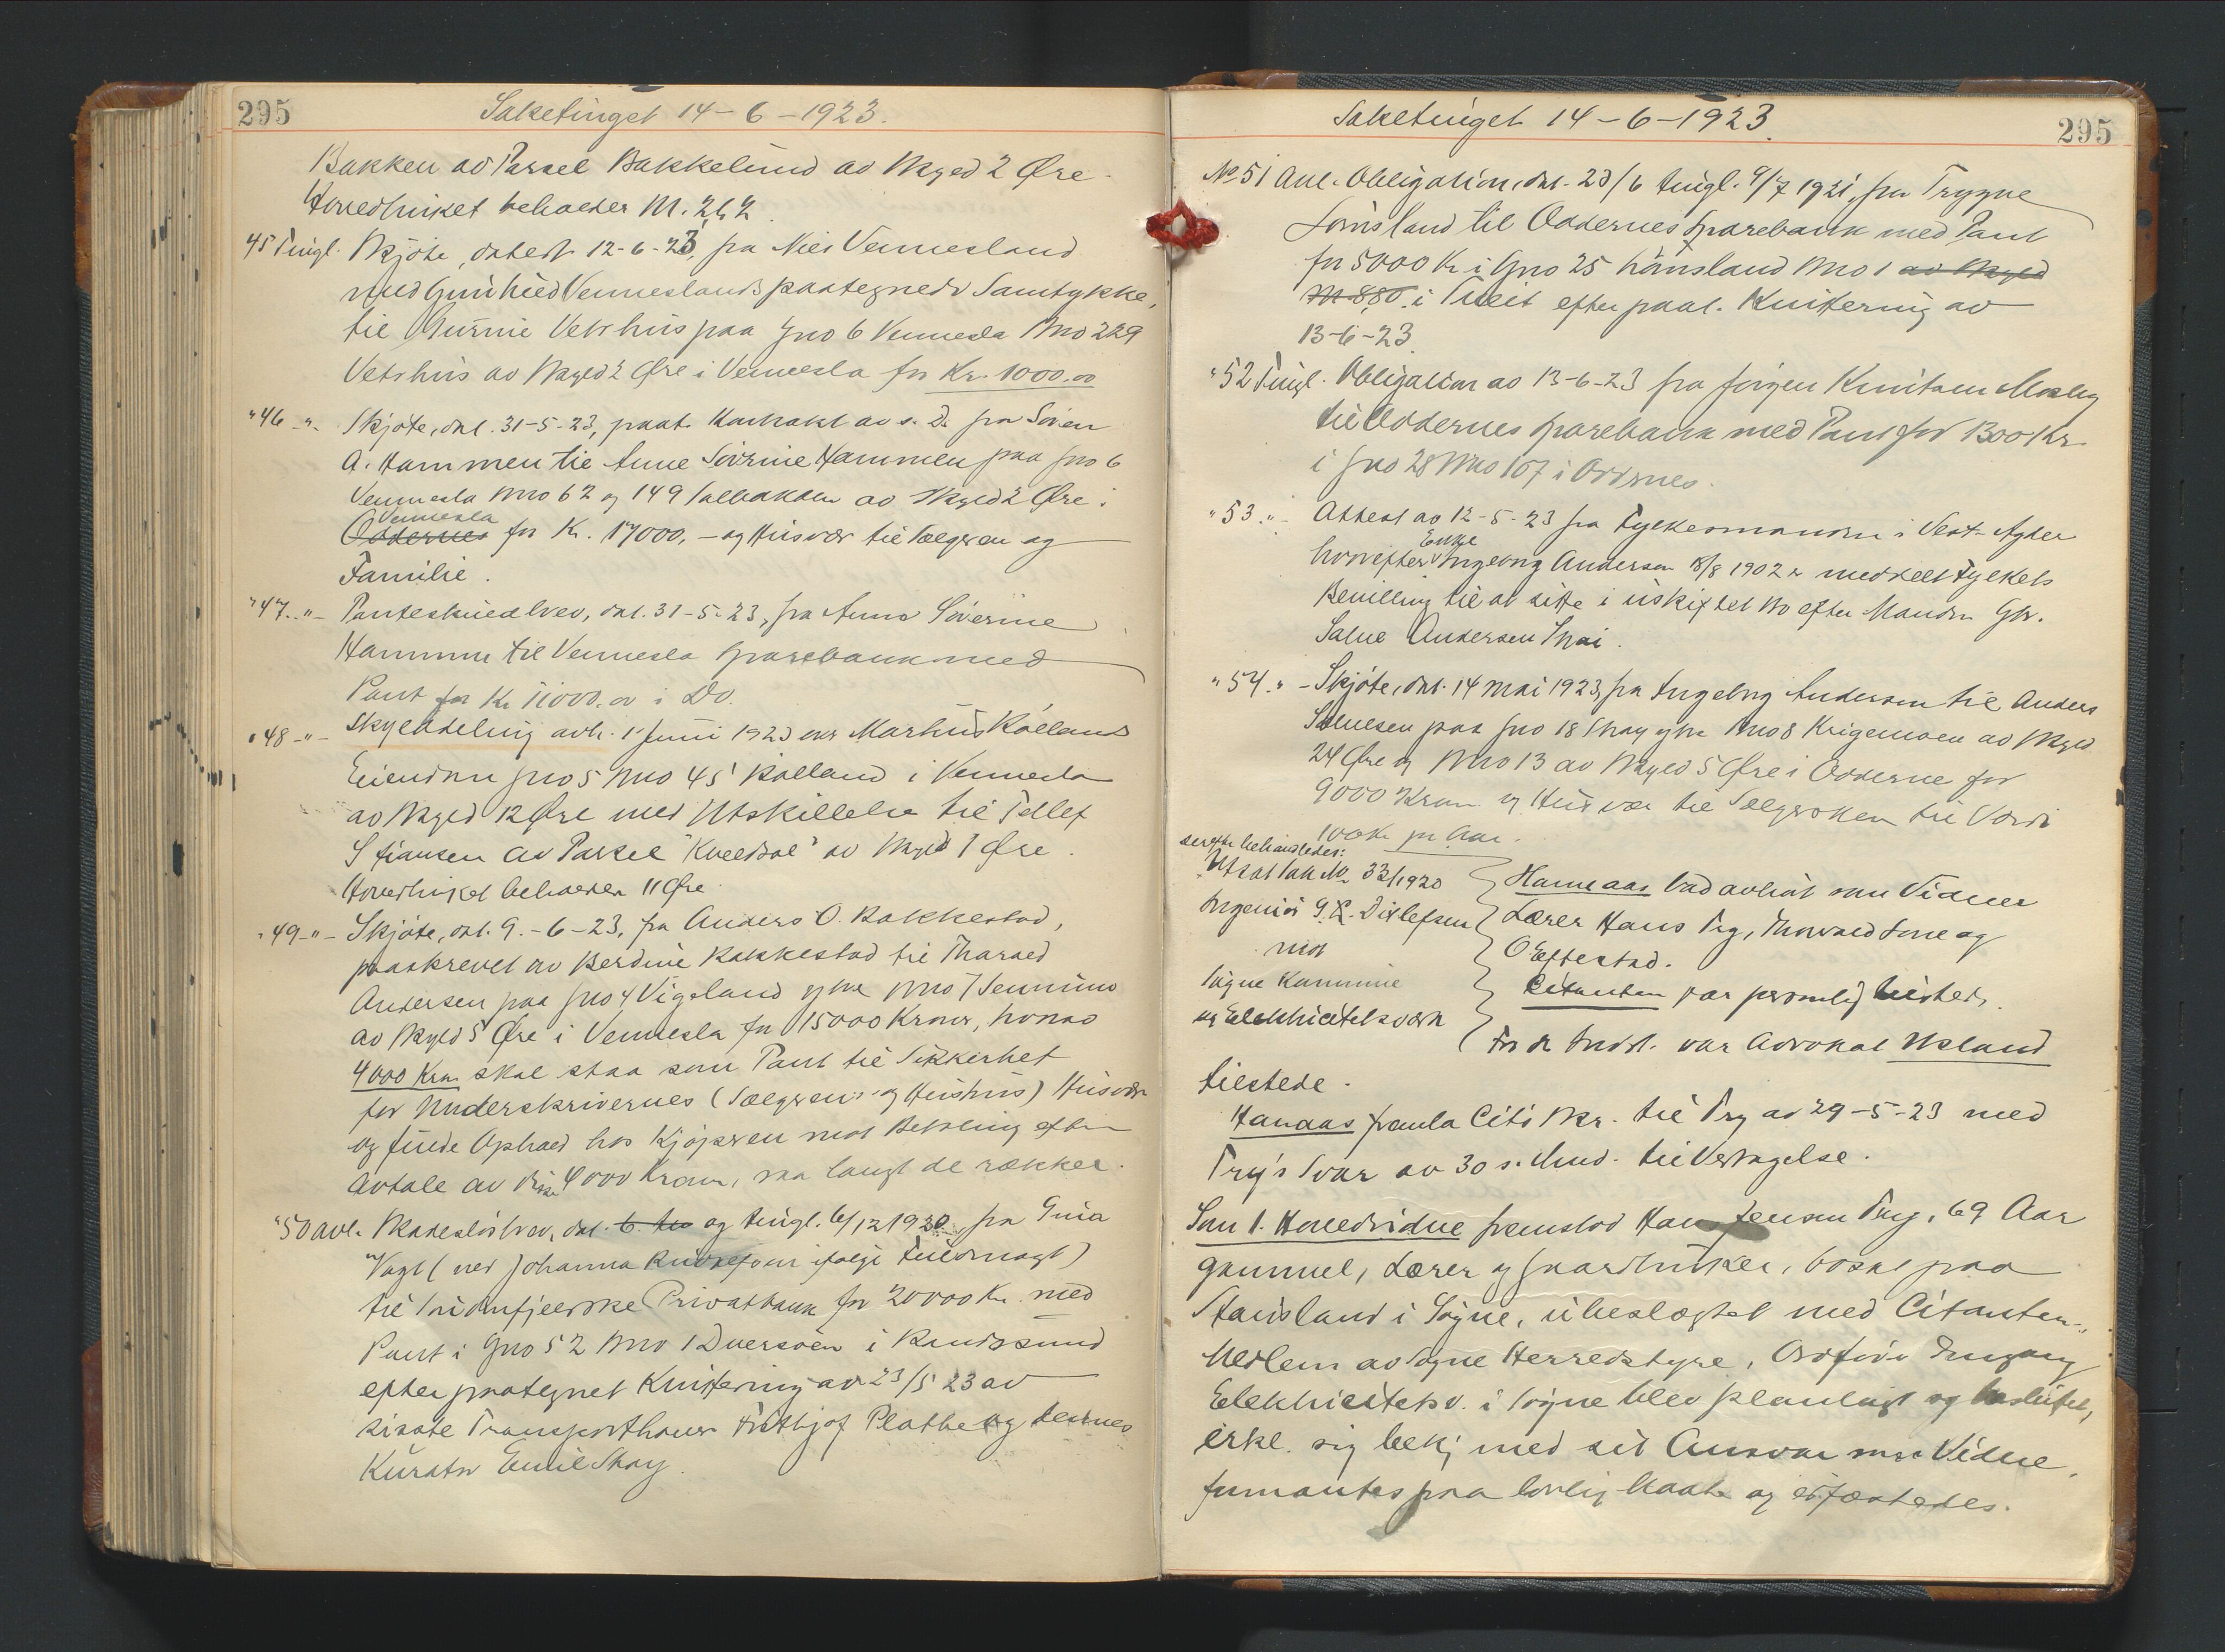 295
Saketinget 14-6-1923.
Bakken av Parsel Bakkelund av Skyld 2 Øre.
Hovedbruket beholder M. 2,62
45 Tingl. Skjøte, datert 12-6-23, fra Nils Vennesland
med Gunhild Venneslands paategnede Samtykke,
til Gunnie Vetrhus paa Gno 6 Vennesla Bno 229
Vetrhus av Skyld 2 Øre i Vennesla for Kr. 1000.00
"46 -"- Skjøte, dat. 31-5-23, paat. Kontrakt av s. D. fra Søren
A. Hammen til Anne Sørine Hammen paa Gno 6
Vennesla Bno 62 og 149 av Skyld 2 Øre i
Vennesla
Oddernes for Kr. 17000,- og Husvær til Sælgeren og
Familie.
"47 -"- Panteskuldbrev, dat. 31-5-23, fra Anne Søverine
Hammen til Vennesla Sparebank med
Pant for Kr 11000.00 i Do.
"48 -"- Skylddeling avh. 1 Juni 1923 over Markus Kollands
Eiendom Gno 5 Bno 45 Kolland i Vennesla
av Skyld 12 Øre med Utskillelse til Tellef
Stiansen av Parsel "Kveldsol" av Skyld 1 Øre.
Hovedbruket beholder 11 Øre.
"49 -"- Skjøte, dat. 9.-6-23, fra Anders O. Bakkestad,
paaskrevet av Berdine Bakkestad til Tharald
Andersen paa Gno 4 Vigeland Bno 7
av Skyld 5 Øre i Vennesla for 15000 Kroner, hvorav
4000 Kron. skal staa som Pant til Sikkerhet
for Underskrivernes (Sælgeren og Hustrus) Husvær
og fulde Ophold hos Kjøperen mot Betaling efter
Avtale av disse 4000 Kroner, saa langt de rækker.
"50 Avl. Skadesløsbrev, dat. 6. ds og tingl. 6/12 1920 fra
Vogt (ved Johanna Knudsen ifølge Fuldmagt)
til Søndenfjeldske Privatbank for 20000 Kr. med
Pant i Gno 52 Bno 1 Dversøen i Randøsund
efter paategnet Kvittering av 23/5 23 av
sidste Transporthaver Fridtjof Plathe og dennes
Kurator Emil Skay.
Saketinget 14-6-1923.
295
No 51 Avl. Obligation, dat. 28/6 tingl. 9/7 1921, fra Trygve
Lømsland til Oddernes Sparebank med Pant
for 5000 Kr i Gno 25 Lømsland Bno 1 av Skyld
M 8,80 i Tveit efter paat. Kvittering av
13-6-23.
"52 Tingl. Obligation av 13-6-23 fra Jørgen Knutsen Mosby
til Oddernes Sparebank med Pant for 1300 Kr
i Gno 28 Bno 107 i Oddernes.
"53 -"- Attest av 12-5-23 fra Fylkesmanden i Vest-Agder
Enke
hvorefter Ingeborg Andersen 18/8 1902 er meddelt Fylkets
Bevilling til at sitte i uskiftet Bo efter Manden Gbr.
Salve Andersen Strai.
"54 -"- Skjøte, dat. 14 Mai 1923, fra Ingeborg Andersen til Anders
Salvesen paa Gno 18 Bno 8 Krigemoen av Skyld
24 Øre og Bno 13 av Skyld 5 Øre i Oddernes for
9000 Kroner og Husvær til Sælgersken til Værdi
100 Kr pr Aar.
derefter behandledes:
Utsat Sak No 33/1920
Ingeniør G. K. Ditlefsen
mot
Søgne Kommune
og Elektricitetsverk
Hanaas bad avhørt som Vidner
Lærer Hans Try, Thorvald Lone og
O Eftestad.
Citanten var personlig tilstede.
For de Indst. var Advokat Usland
tilstede.
Hanaas fremla Cits Skr. til Try av 29-5-23 med
Try's Svar av 30 s. Mnd. til Vedtagelse.
Som 1. Hovedvidne fremstod Hans Jensen Try, 69 Aar
gammel, Lærer og Gaardbruker, bosat paa
Stausland i Søgne, ubeslægtet med Citanten,
Medlem av Søgne Herredstyre, Ordfører Dengang
Elektricitetsv. i Søgne blev planlagt og besluttet,
erkl. sig bekj. med sit Ansvar som Vidne,
formantes paa lovlig Maate og edfæstedes.